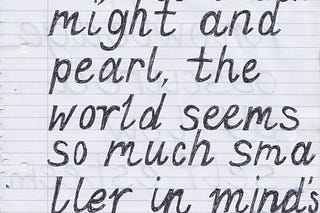 might and
pearl, the
world seems
so much sma
ller in mind's